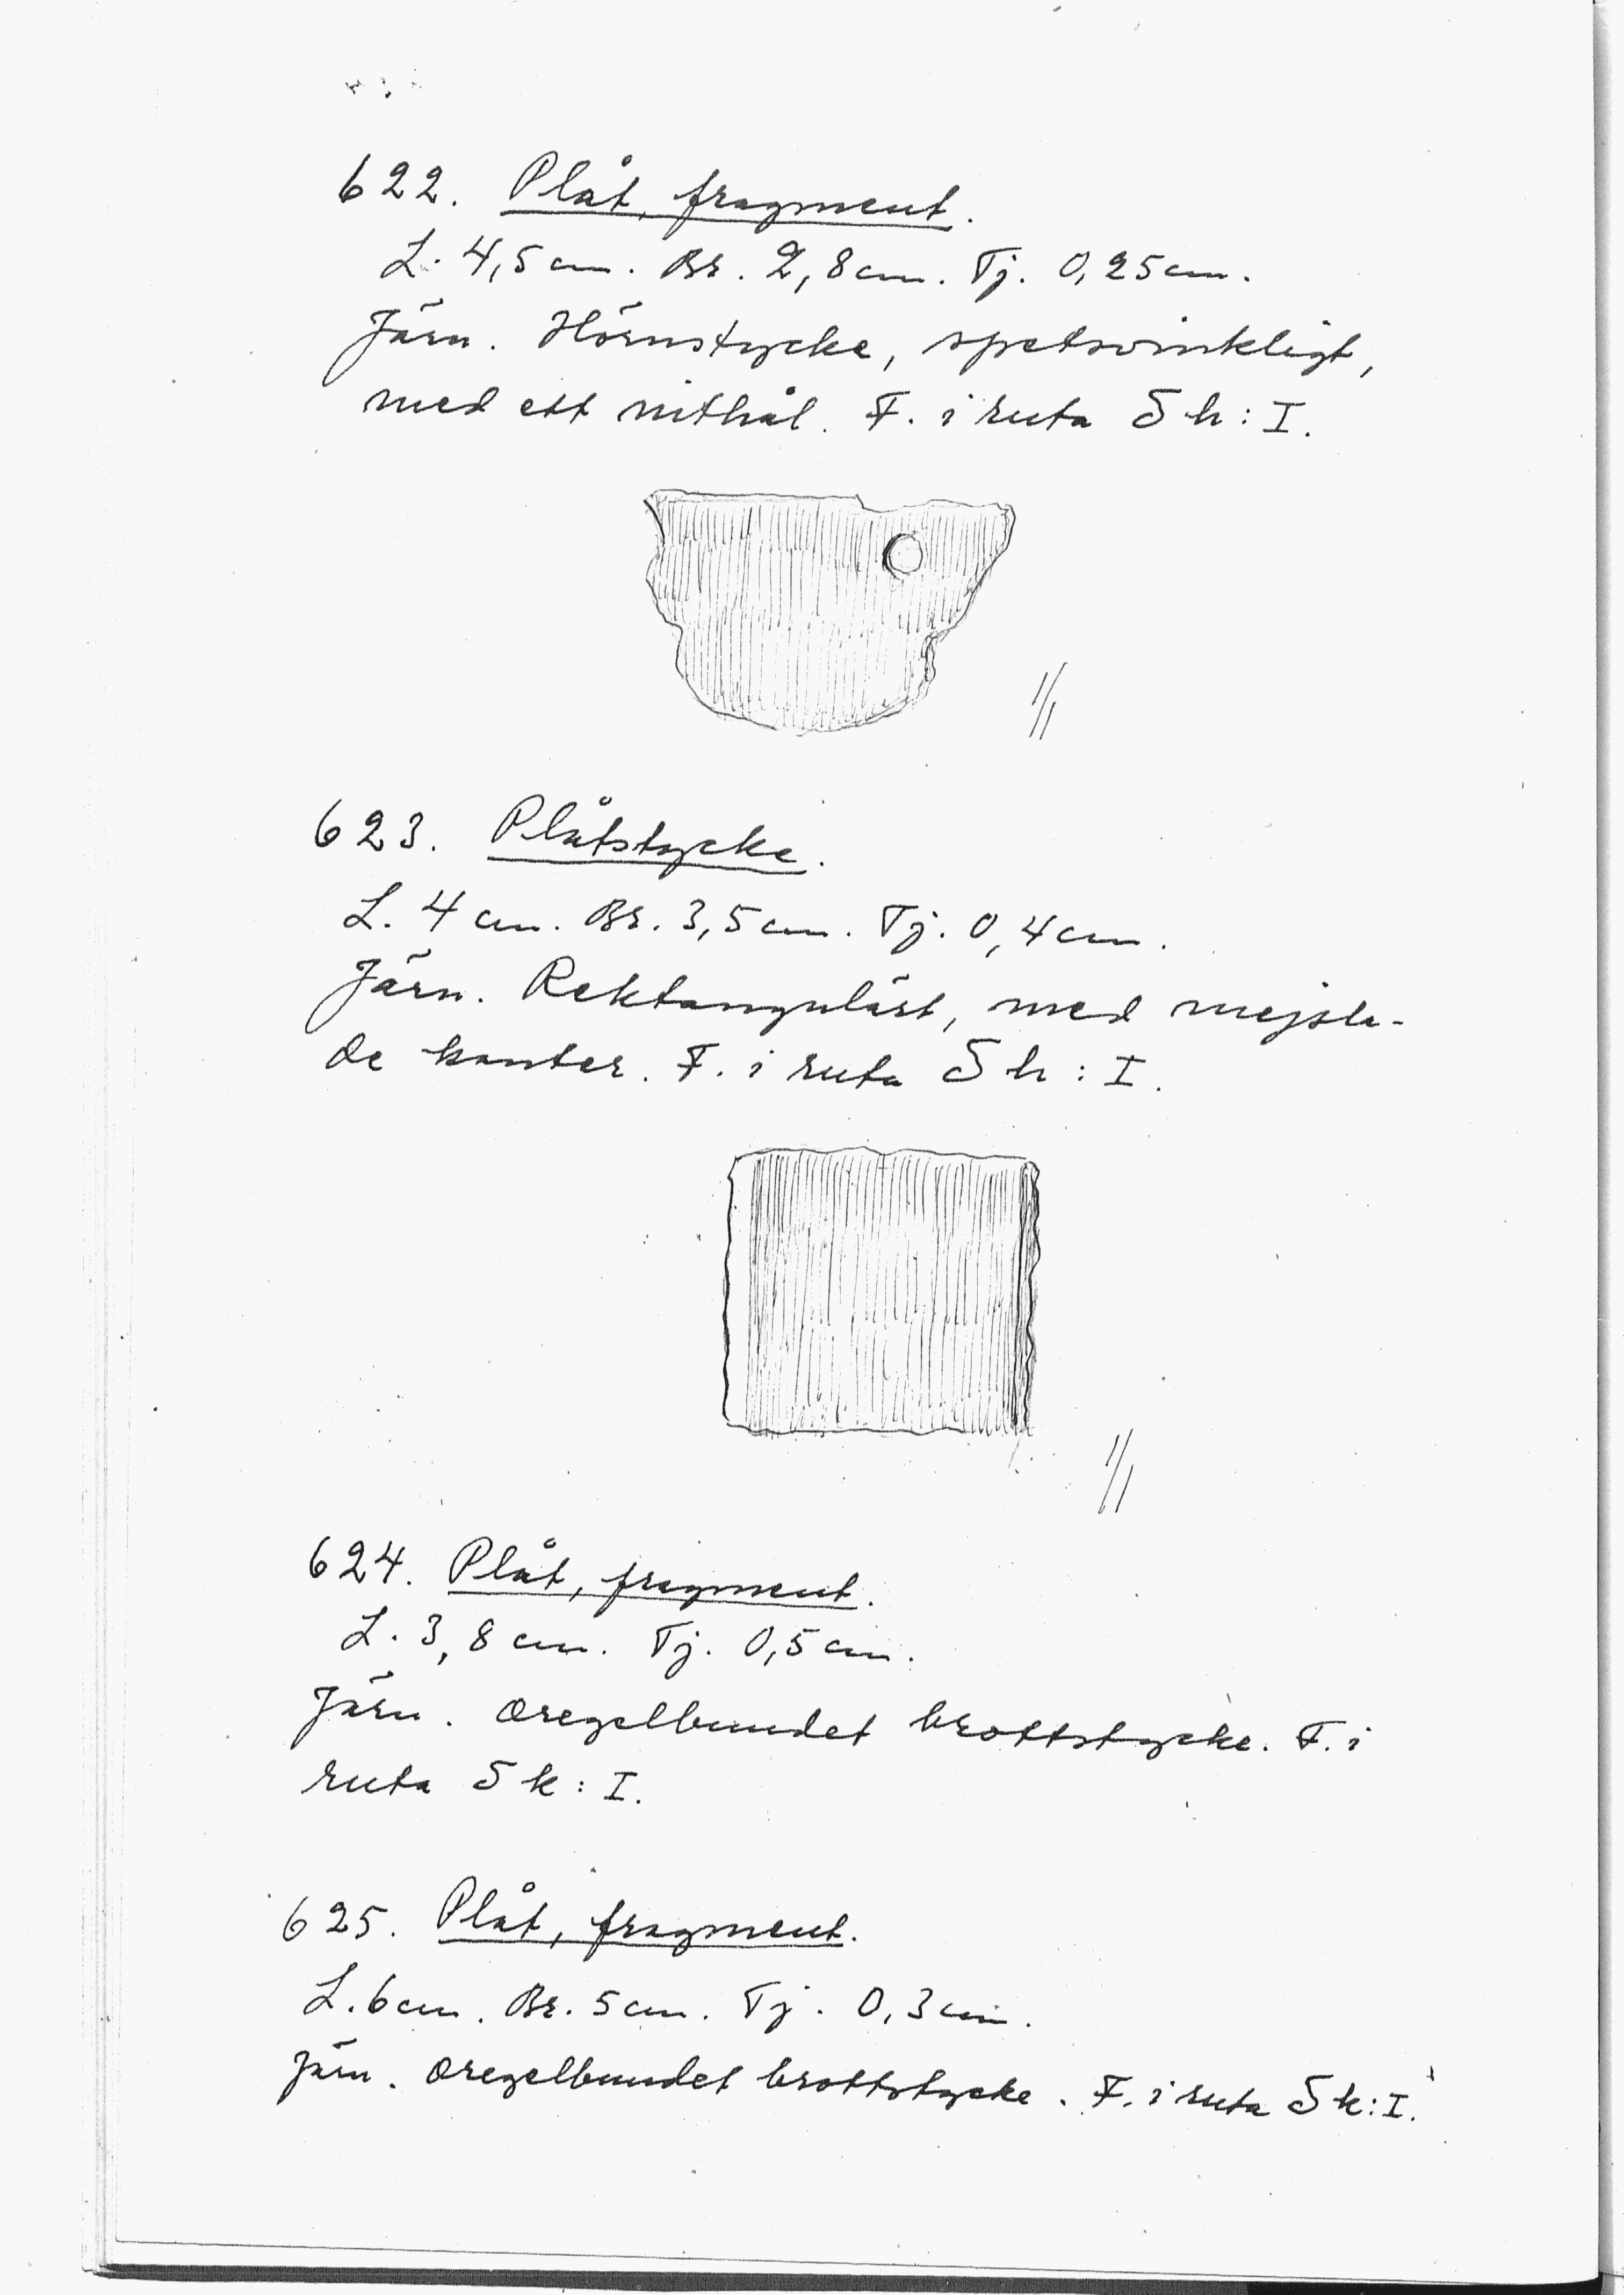 622. Plåt, fragment.
L. 4,5 cm. Br. 2,8 cm. Tj. 0,25 cm.
Järn. Hörnstycke, spetsvinkligt,
med ett nithål. F. i ruta 5 h : I.
1/1
623. Plåtstycke.
L. 4 cm. Br. 3,5 cm. Tj. 0,4 cm.
Järn. Rektangulärt, med mejsla-
de kanter. F. i ruta 5 h : I.
1/1
624. Plåt, fragment.
L. 3,8 cm. Tj. 0,5 cm.
Järn. Oregelbundet brottstycke. F. i
ruta 5 k : I.
625. Plåt, fragment.
L. 6 cm. Br. 5 cm. Tj. 0,3 cm.
Järn. Oregelbundet brottstycke. F. i ruta 5 k : I.